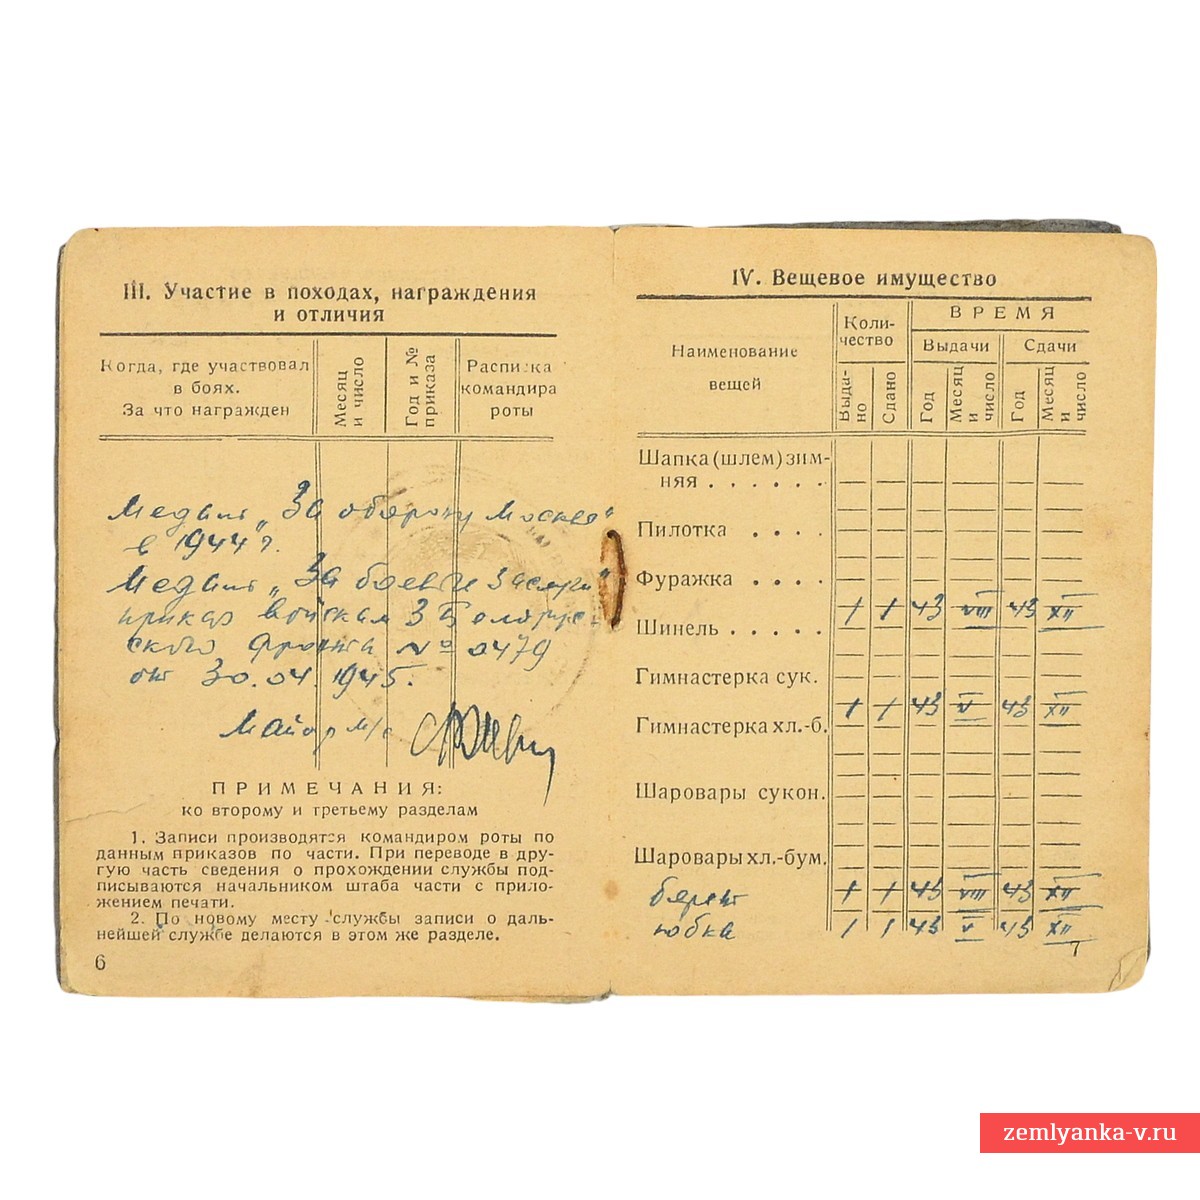 III. Участие в походах, награждения
и отличия
Когда, где участвовал
в боях.
За что награжден
Месяц
и число
Год и №
приказа
Расписка
командира
роты
Медаль „За оборону Москвы"
в 1944 г.
Медаль „За боевые заслуги"
приказ войскам 3 Белорус-
ского фронта № 0479
от 30.04.1945.
Майор м/с
ПРИМЕЧАНИЯ:
ко второму и третьему разделам
1. Записи производятся командиром роты по
данным приказов по части. При переводе в дру-
гую часть сведения о прохождении службы под-
писываются начальником штаба части с прило-
жением печати.
2. По новому месту службы записи о даль-
нейшей службе делаются в этом же разделе.
6
IV. Вещевое имущество
Наименование
вещей
Коли-
чество
ВРЕМЯ
Выдачи
Сдачи
Выда-
но
Сдано
Год
Месяц
и
число
Год
Месяц
и
число
Шапка (шлем) зим-
няя . . . . . .
Пилотка . . . .
Фуражка . . . .
Шинель . . . . . 1 1 43 VIII 43 XII
Гимнастерка сук.
Гимнастерка хл.-б. 1 1 43 V 43 XII
Шаровары сукон.
Шаровары хл.-бум.
берет 1 1 43 VIII 43 XII
юбка 1 1 43 V 43 XII
7
zemlyanka-v.ru